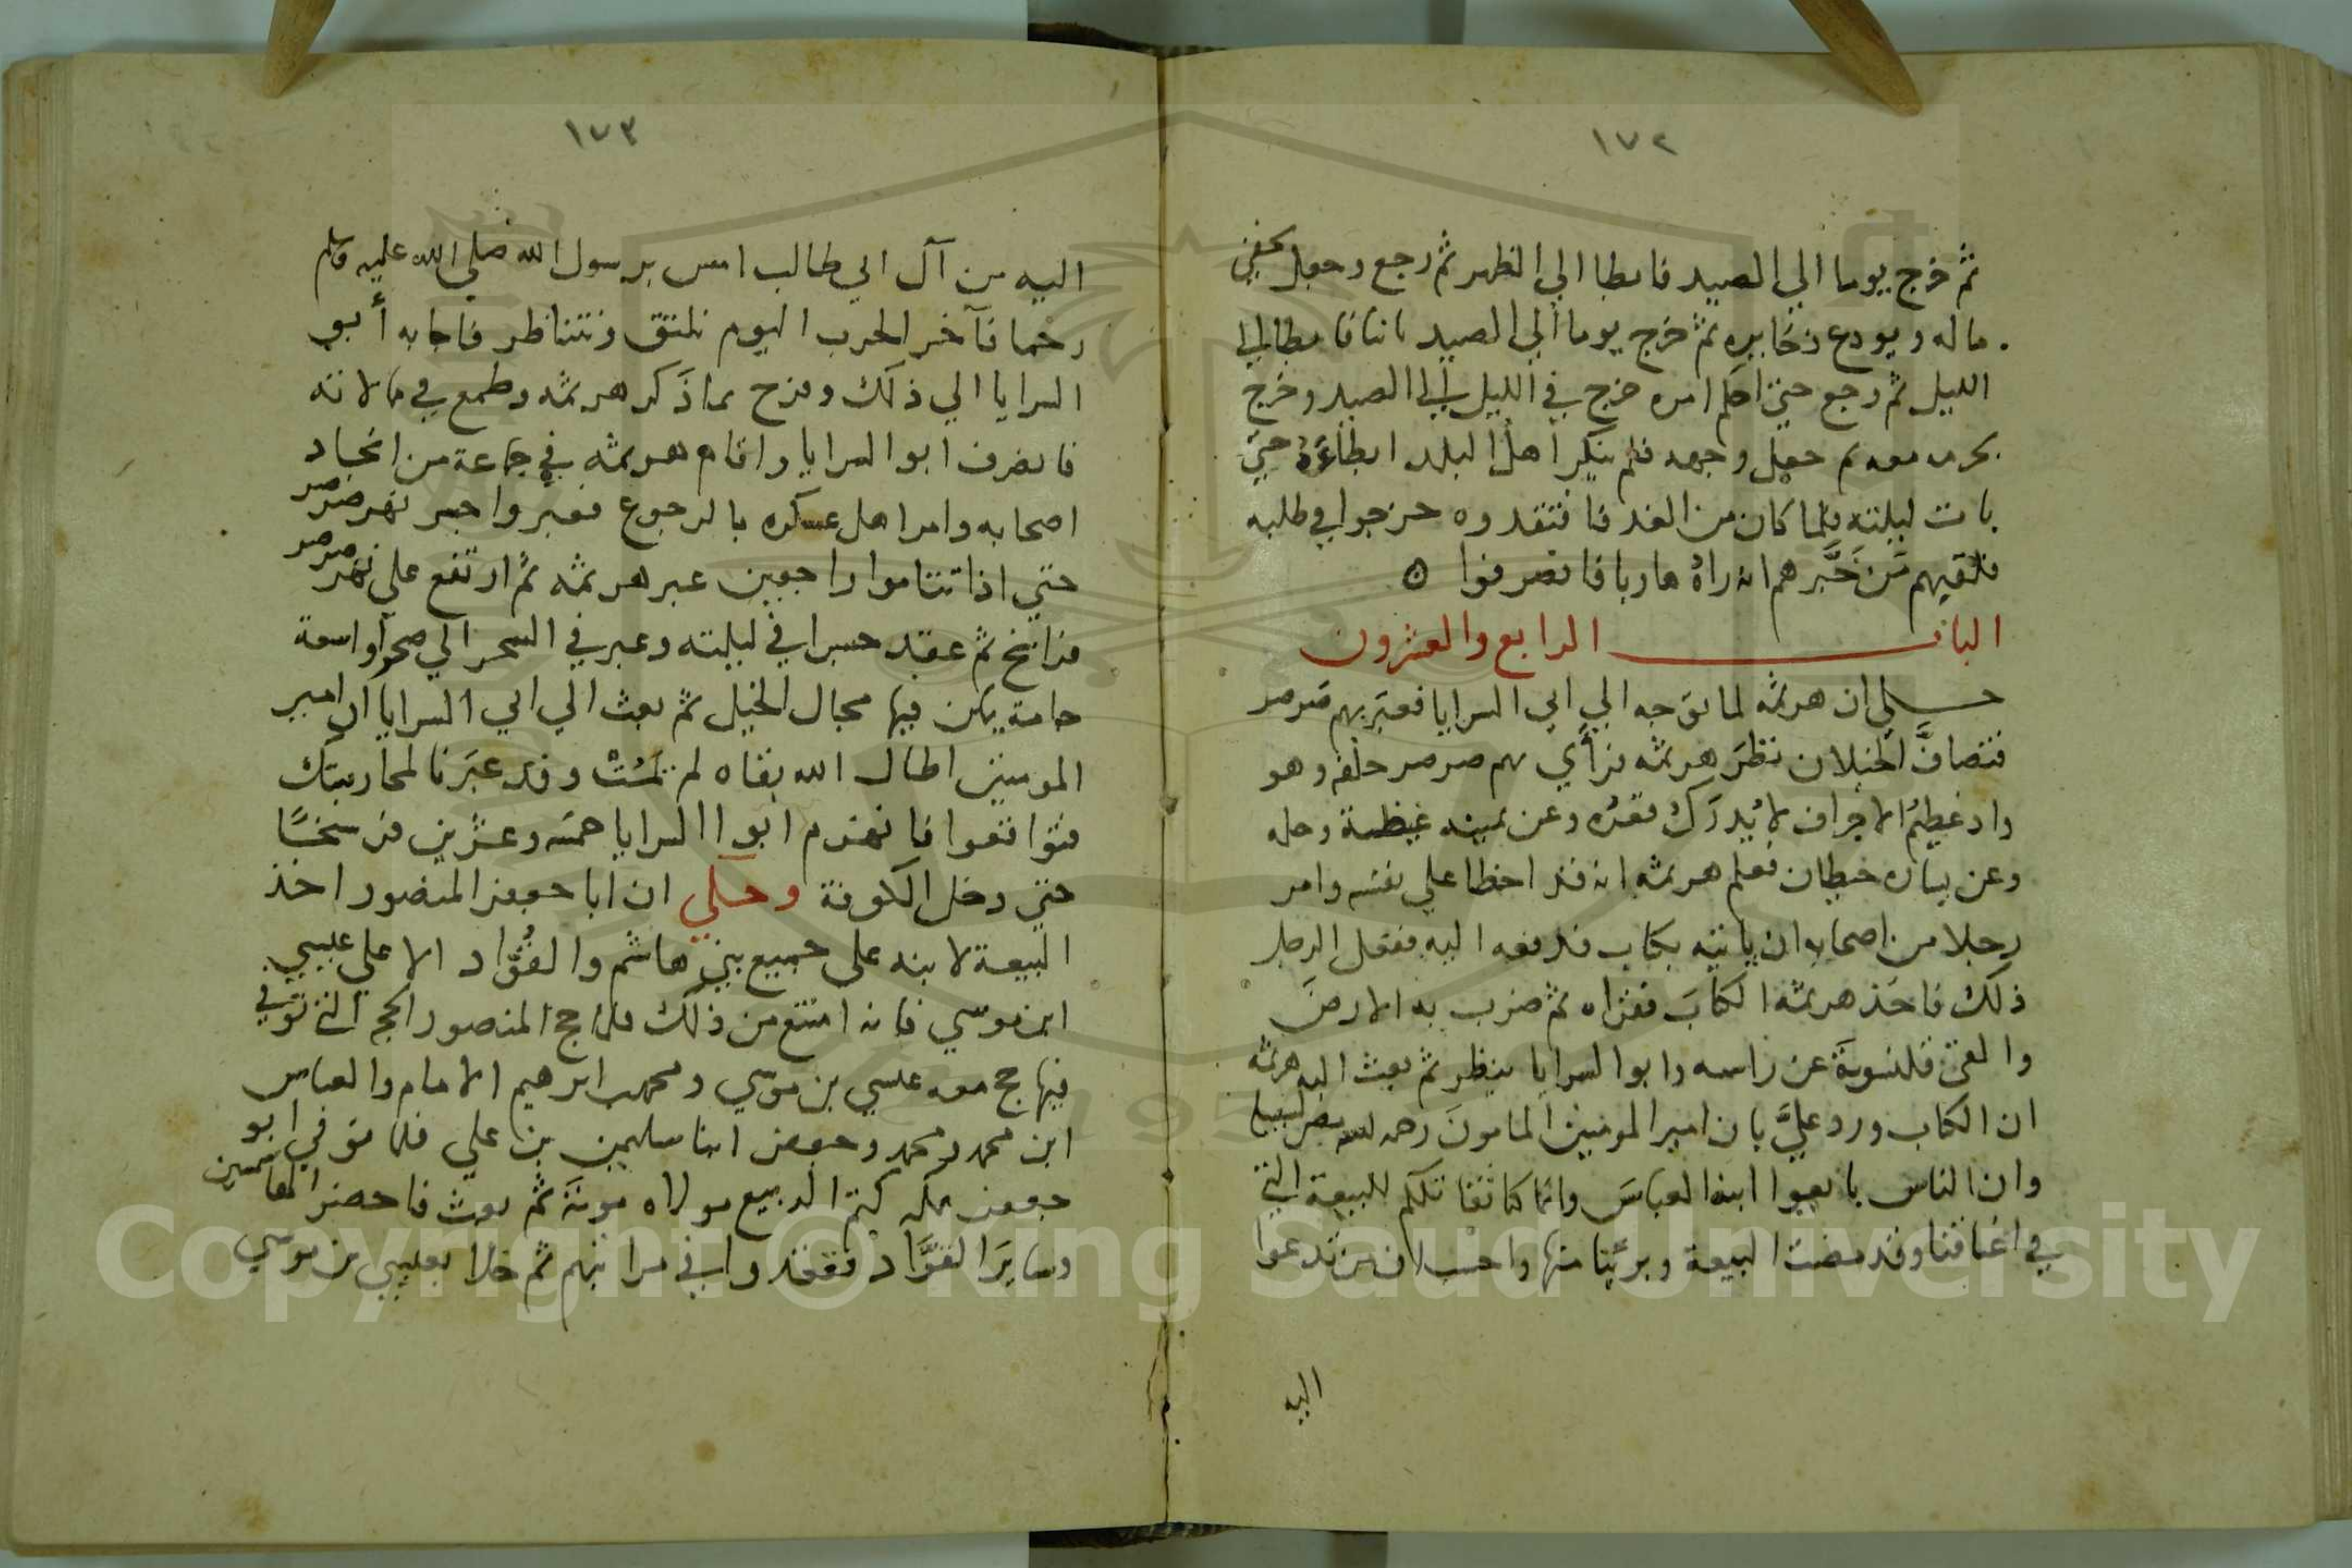 ١٧٢
ثم خرج يوما الي الصيد فابطا الي الظهر ثم رجع وجعل يخفي
ماله ويودع ذخايره ثم خرج يوما الي الصيد بابنا فابطا الي
الليل ثم رجع حتي احكم امره خرج في الليل الي الصيد وخرج
بحرمه معه ثم جعل وجهه فلم ينكر اهل البلد ابطاءَهُ حتي
بات ليلته فلما كان من الغد فافتقدوه خرجوا في طلبه
فلقيهم مَن خَبَّرهم انه راهُ هاربا فانصرفوا ه
الباب الرابع والعشرون
حكي ان هرثمه لما توجه الي ابي السرايا فعبر بهم صرصر
فتصافَّ الخيلان نظرَ هرثمه فرأي نهر صرصر خلفه وهو
واد عظيم الاجراف لا يُدرَكُ قعرُه وعن يمينه غيظة وحله
وعن يساره خيطان فعلم هرثمه انه قد اخطا علي نفسه وامر
رجلا من اصحابه ان ياتيه بكتاب فدفعه اليه ففعل الرجل
ذلك فاخذ هرثمة الكتابَ فقراه ثم ضرب به الارضَ
والقي قلنسوتَه عن راسه وابوا السرايا ينظر ثم بعث اليه هرثمه
ان الكتاب ورد عليَّ بان امير المومنين المامونَ رحمه الله مضي لسبيله
وان الناس بايعوا ابنه العباسَ وانما كنا نقاتلكم للبيعة التي
في اعناقنا وقد مضت البيعة وبرئنا منها واحب الان من تدعوا
اليه
١٧٣
اليه من آل ابي طالب امس برسول الله صلي الله عليه وسلم
رحما فآخر الحرب اليوم نلتق ونتناظر فاجابه أبو
السرايا الي ذلك وفرح بما ذكر هرثمه وطمع في مالاته
فانصرف ابوا السرايا واقام هرثمه في جماعة من انجاد
اصحابه وامر اهل عسكره بالرجوع فعبروا جسر نهر صرصر
حتي اذا تتاموا راجعين عبر هرثمه ثم ارتفع علي نهر صرصر
فراسخ ثم عقد جسرا في ليلته وعبر في السحر الي صحراو اسعة
جامة يمكن فيها مجال الخيل ثم بعث الي ابي السرايا ان امير
المومنين اطال الله بقاه لم يَمُتْ وقد عبَرنا لمحاربتك
فتواقعوا فانهزم ابوا السرايا خمسه وعشرين فرسخًا
حتي دخل الكوفة وحكي ان ابا جعفر المنصور اخذ
البيعة لابنه علي جميع بني هاشم والقُوَّاد الا علي عيسي
ابن موسي فانه امتنع من ذلك فلما حج المنصور الحجه التي توفي
فيها حج معه عيسي بن موسي ومحمد بن ابرهيم الامام والعباس
ابن محمد ومحمد وجعفر ابنا سليمن بن علي فلما توفي ابو
جعفر بمكه كتم الربيع مولاه موتَه ثم بعث فاحضر الهاشميين
وسايرَ القوَّاد فقعدوا في مراتبهم ثم خلا بعيسي بن موسي